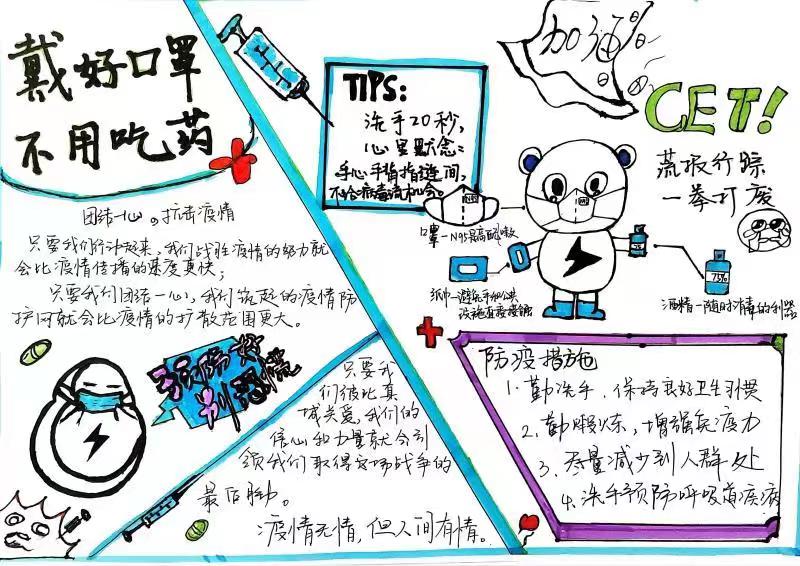 戴好口罩
不用吃药
团结一心。抗击疫情
只要我们行动起来,我们战胜疫情的努力就
会比疫情传播的速度更快;
只要我们团结一心,我们筑起的疫情防
护网就会比疫情的扩散范围更大。
预防好
别恐慌
只要我
们彼此真
城关爱,我们的
信心和力量就会引
领我们取得这场战争的
最后胜利。
疫情无情,但人间有情。
TIPS:
洗手20秒,
心里默念:
手心手背指缝间,
不给病毒流机会。
加油
GET!
一拳打废
N95
N95
口罩—N95是高配嗷
纸巾—避免手和公共
设施直接接触
75
75%
酒精—随时消毒的利器
防疫措施
1. 勤洗手、保持良好卫生习惯
2. 勤锻炼,增强免疫力
3. 尽量减少到人群处
4. 洗手预防呼吸道疾病